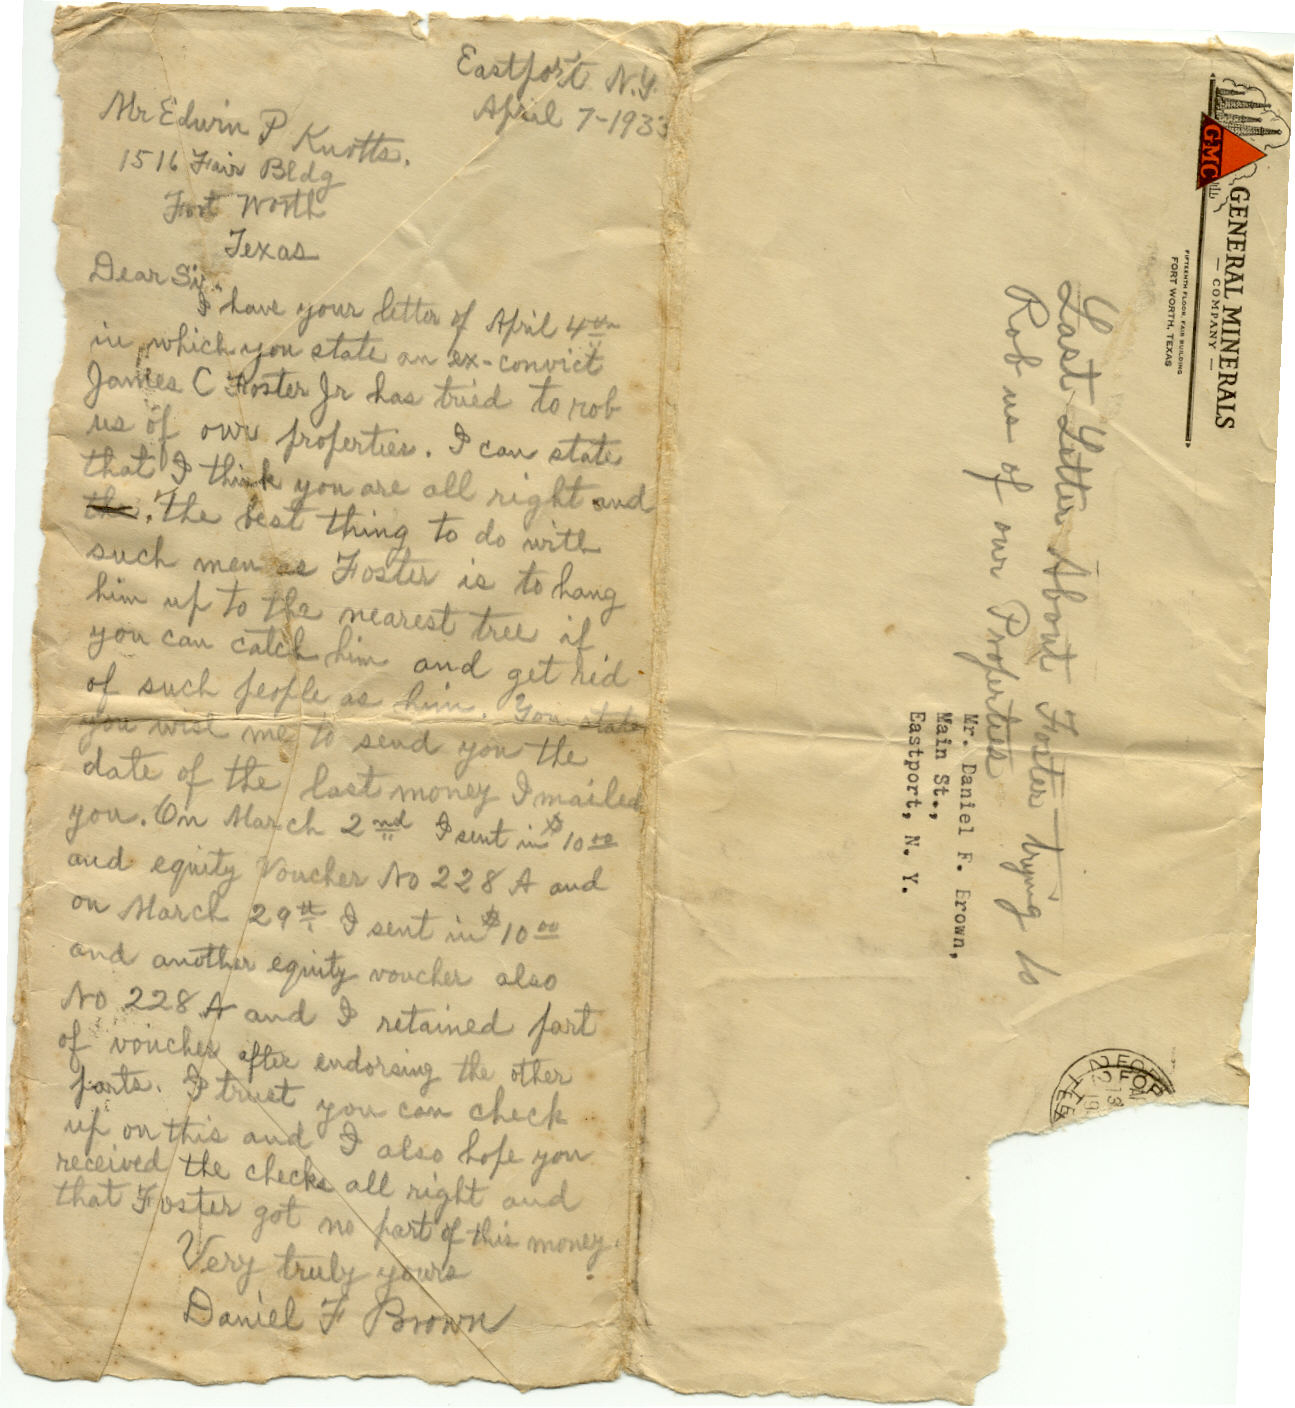 Eastport N.Y.
April 7-1933
Mr Edwin P Knotts.
1516 Fair Bldg
Fort Worth
Texas
Dear Sir,
I have your letter of April 4th
in which you state an ex-convict
James C Foster Jr has tried to rob
us of our properties. I can state
that I think you are all right and
the. The best thing to do with
such men as Foster is to hang
him up to the nearest tree if
you can catch him and get rid
of such people as him. You state
you wish me to send you the
date of the last money I mailed
you. On March 2nd I sent in $10.00
and equity voucher No 228 A and
on March 29th I sent in $10.00
and another equity voucher also
No 228 A and I retained part
of voucher after endorsing the other
parts. I trust you can check
up on this and I also hope you
received the checks all right and
that Foster got no part of this money.
Very truly yours
Daniel F Brown
GMC
GENERAL MINERALS
— COMPANY —
FIFTEENTH FLOOR, FAIR BUILDING
FORT WORTH, TEXAS
Last Letter About Foster trying to
Rob us of our Properties
Mr. Daniel F. Brown,
Main St.,
Eastport, N. Y.